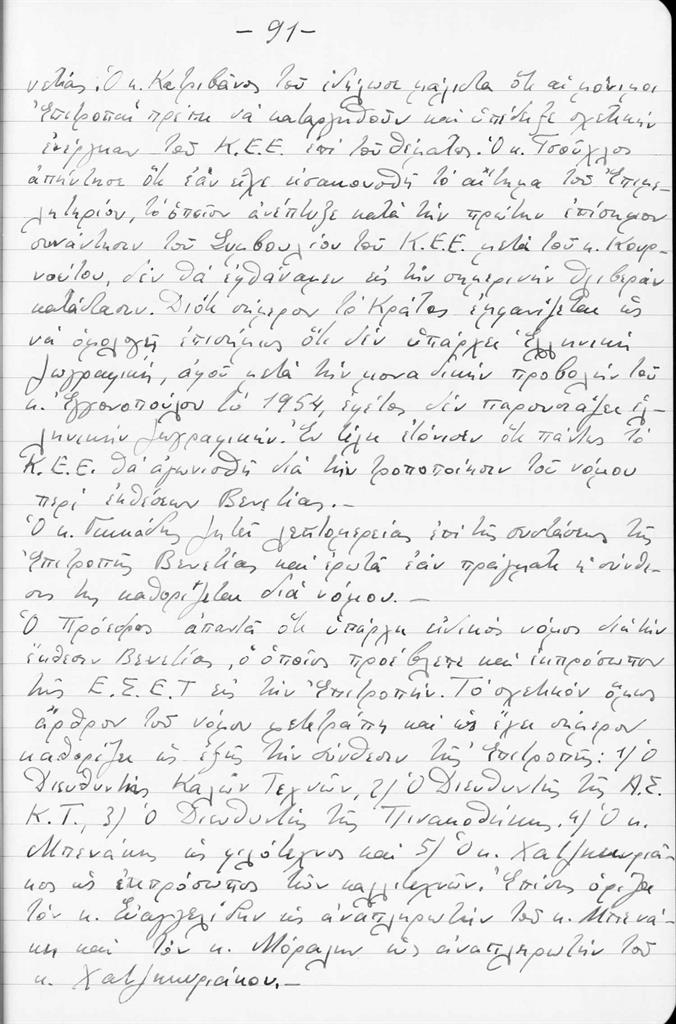 - 91 -
νετίας. Ὁ κ. Κατριβάνος τοῦ ἐδήλωσε μάλιστα ὅτι αἱ μόνιμοι
Ἐπιτροπαί πρέπει νά καταργηθοῦν καί ὑπέδειξε σχετικήν
ἐνέργειαν τοῦ Κ.Ε.Ε. ἐπί τοῦ θέματος. Ὁ κ. Τσούχλος
ἀπήντησε ὅτι ἐάν εἶχε εἰσακουσθῆ τό αἴτημα τοῦ Ἐπιμε-
λητηρίου, τό ὁποῖον ἀνέπτυξε κατά τήν πρώτην ἐπίσημον
συνάντησιν τοῦ Συμβουλίου τοῦ Κ.Ε.Ε. μετά τοῦ κ. Κουρ-
νούτου, δέν θά ἐφθάναμεν εἰς τήν σημερινήν θλιβεράν
κατάστασιν. Διότι σήμερον τό Κράτος ἐμφανίζεται ὡς
νά ὁμολογῇ ἐπισήμως ὅτι δέν ὑπάρχει Ἑλληνική
ζωγραφική, ἀφοῦ μετά τήν μοναδικήν προβολήν τοῦ
κ. Ἐγγονοπούλου τό 1954, ἐφέτος δέν παρουσιάζει ἑλ-
ληνικήν ζωγραφικήν. Ἐν τέλει ἐτόνισεν ὅτι πάντως τό
Κ.Ε.Ε. θά ἀγωνισθῆ διά τήν τροποποίησιν τοῦ νόμου
περί ἐκθέσεων Βενετίας.—
Ὁ κ. ζητεῖ λεπτομερείας ἐπί τῆς συστάσεως τῆς
Ἐπιτροπῆς Βενετίας καί ἐρωτᾶ ἐάν πράγματι ἡ σύνθε-
σις της καθορίζεται διά νόμου.—
Ὁ Πρόεδρος ἀπαντᾶ ὅτι ὑπάρχει εἰδικός νόμος διά τήν
ἔκθεσιν Βενετίας, ὁ ὁποῖος προέβλεπε καί ἐκπρόσωπον
τῆς Ε.Σ.Ε.Τ εἰς τήν Ἐπιτροπήν. Τό σχετικόν ὅμως
ἄρθρον τοῦ νόμου μετετράπη καί ὡς ἔχει σήμερον
καθορίζει ὡς ἑξῆς τήν σύνθεσιν τῆς Ἐπιτροπῆς: 1/ Ὁ
Διευθυντής Καλῶν Τεχνῶν, 2/ Ὁ Διευθυντής τῆς Α.Σ.
Κ.Τ., 3/ Ὁ Διευθυντής τῆς Πινακοθήκης, 4/ Ὁ κ.
Μπενάκης ὡς φιλότεχνος καί 5/ Ὁ κ. Χατζηκυριά-
κος ὡς ἐκπρόσωπος τῶν καλλιτεχνῶν. Ἐπίσης ὁρίζει
τόν κ. Εὐαγγελίδην ὡς ἀναπληρωτήν τοῦ κ. Μπενά-
κη καί τόν κ. Μόραλην ὡς ἀναπληρωτήν τοῦ
κ. Χατζηκυριάκου.—